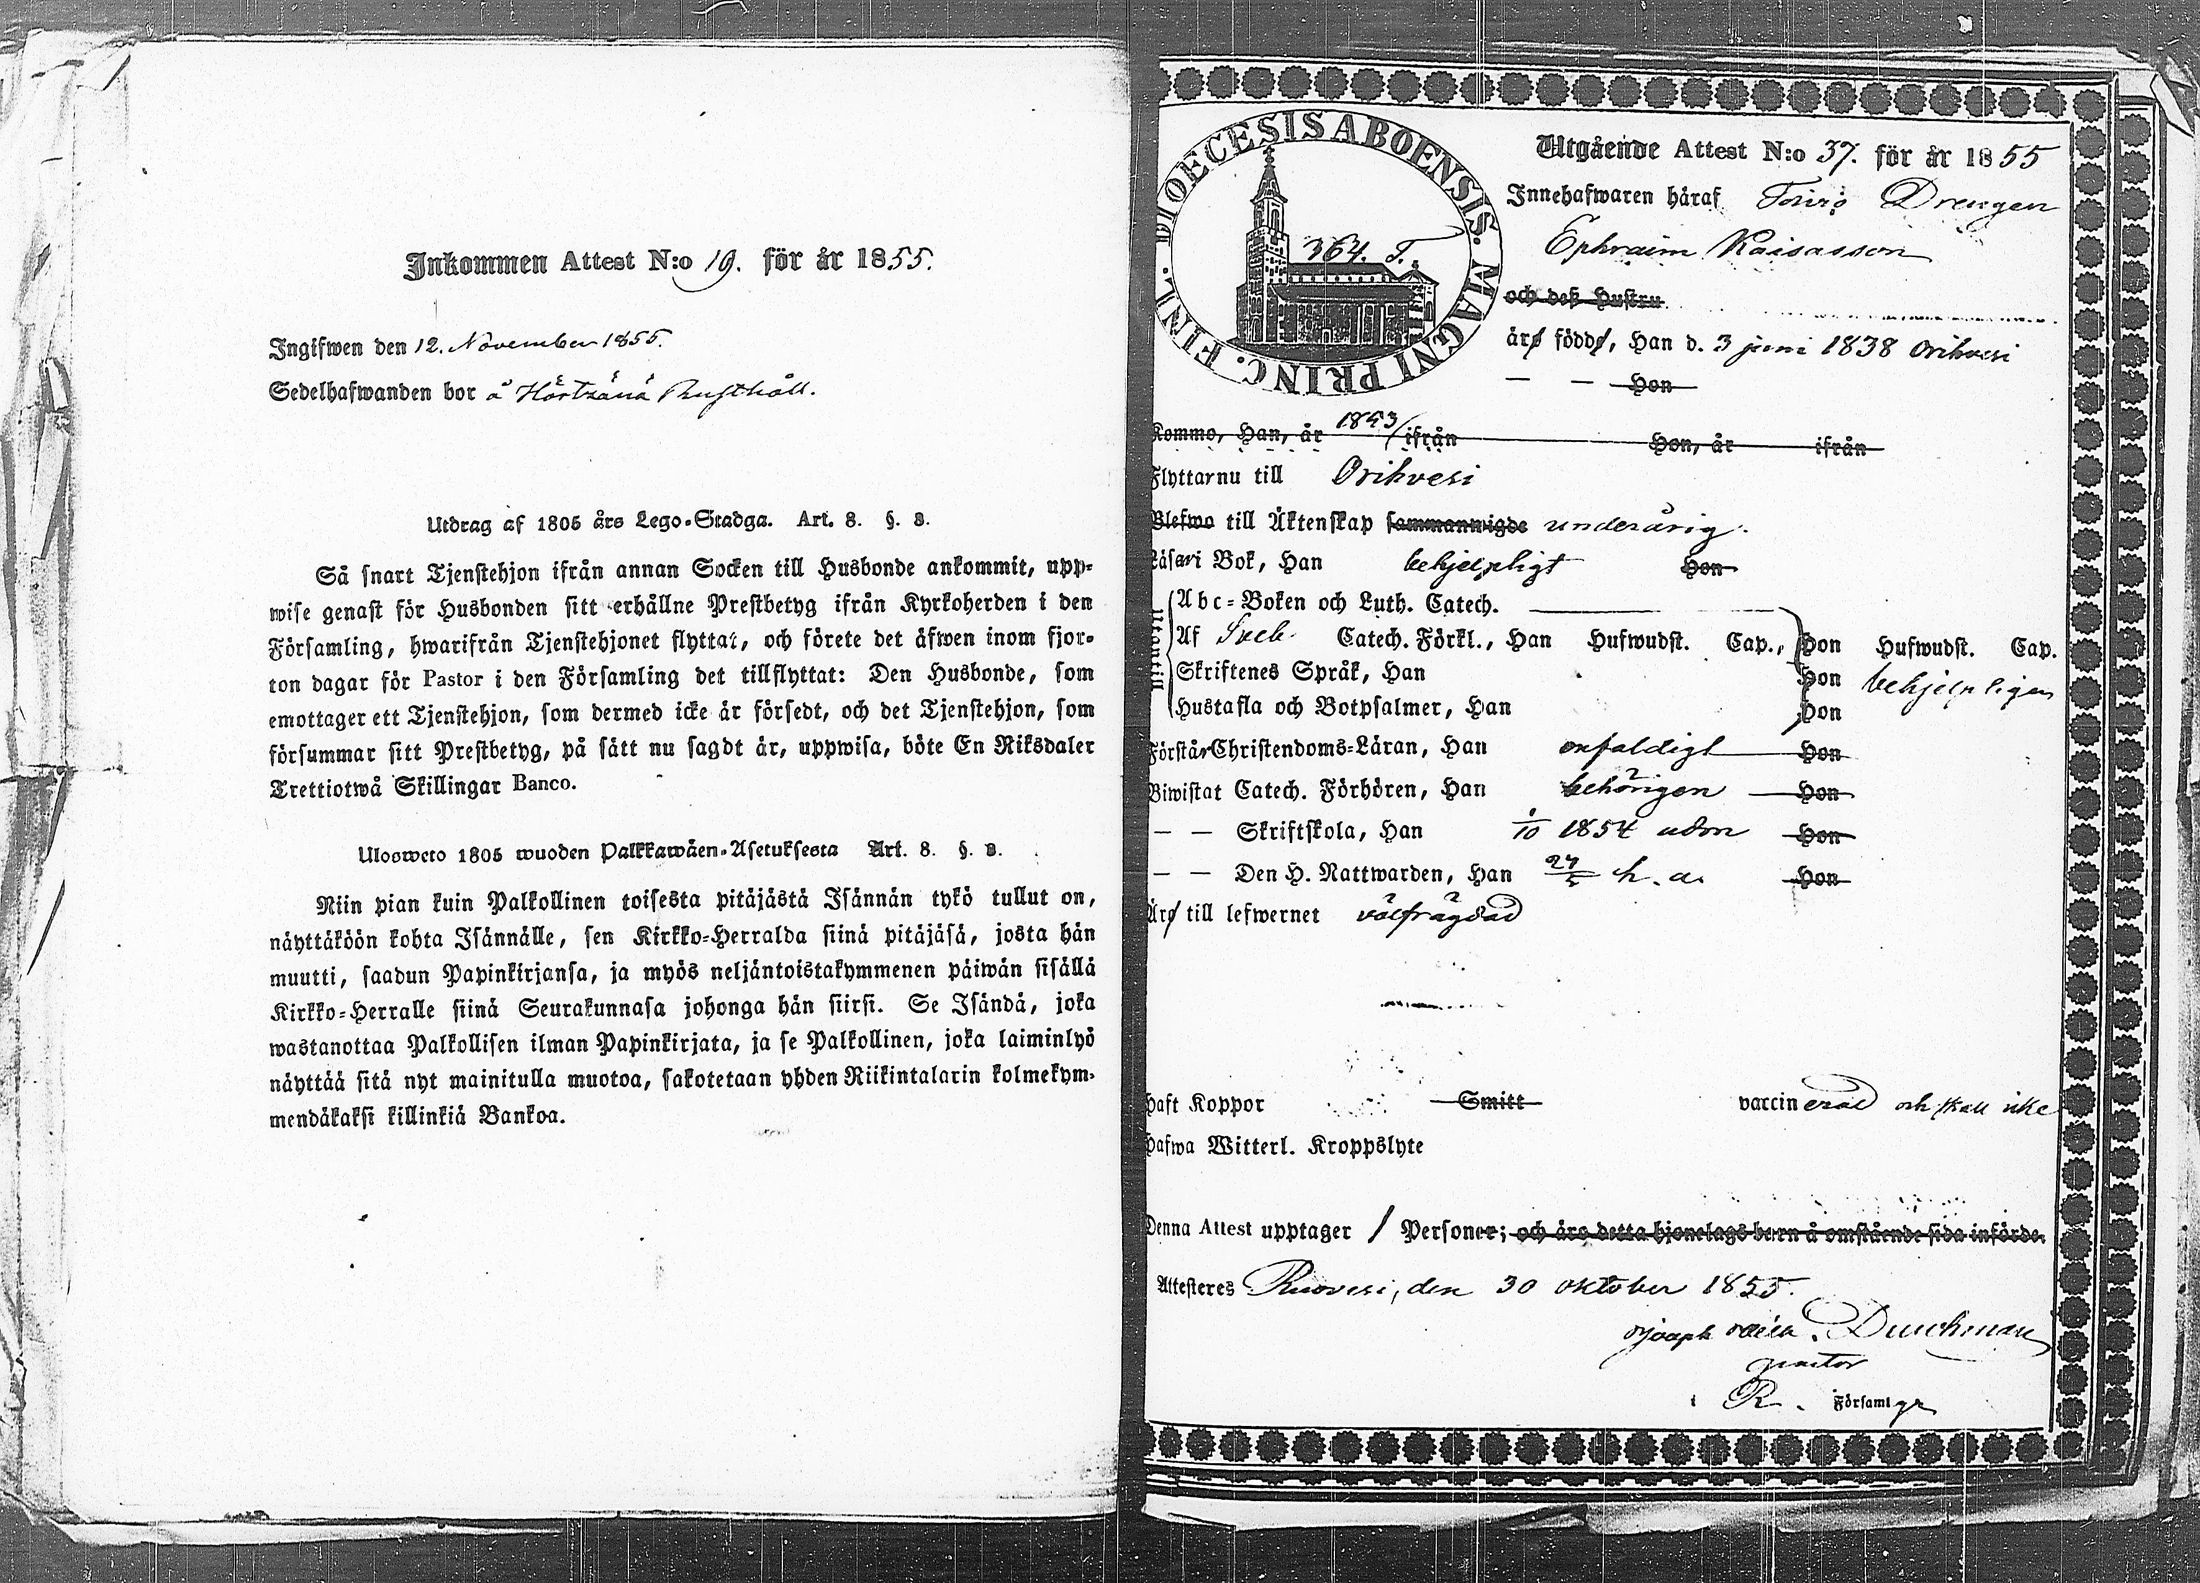 Inkommen Attest N:o 19. för år 1855.
Ingifwen den 12. November 1855.
Sedelhafwanden bor å Hörtsänä Rusthåll.
Utdrag af 1805 års Lego-Stadga. Art. 8. §. 8.
Så snart Tjenstehjon ifrån annan Socken till Husbonde ankommit, upp-
wise genast för Husbonden sitt erhållne Prestbetyg ifrån Kyrkoherden i den
Församling, hwarifrån Tjenstehjonet flyttat, och förete det äfwen inom fjor-
ton dagar för Pastor i den Församling det tillflyttat: Den Husbonde, som
emottager ett Tjenstehjon, som dermed icke är försedt, och det Tjenstehjon, som
försummar sitt Prestbetyg, på sätt nu sagdt är, uppwisa, böte En Riksdaler
Trettiotwå Skillingar Banco.
Ulosweto 1805 wuoden Palkkawäen-Asetuksesta Art. 8. §. 8.
Niin pian kuin Palkollinen toisesta pitäjästä Isännän tykö tullut on,
näyttäköön kohta Isännälle, sen Kirkko-Herralda siinä pitäjäsä, josta hän
muutti, saadun Papinkirjansa, ja myös neljäntoistakymmenen päiwän sisällä
Kirkko-Herralle siinä Seurakunnasa johonga hän siirsi. Se Isändä, joka
wastanottaa Palkollisen ilman Papinkirjata, ja se Palkollinen, joka laiminlyö
näyttää sitä nyt mainitulla muotoa, sakotetaan yhden Riikintalarin kolmekym-
mendäkaksi killinkiä Bankoa.
DIOECESIS ABOENSIS. MAGNI PRINC. FINL.
364. T.
Utgående Attest N:o 37. för år 1855
Innehafwaren häraf Drengen
Ephraim Kaisasson
och dess Hustru
äro födde, Han d. 3 juni 1838 Orihvesi
— — Hon
Kommo, Han, år 1853 ifrån Hon, år ifrån
Flyttar nu till Orihvesi
Blefwo till Äktenskap sammanwigde underårig.
Läser i Bok, Han behjelpligt Hon
Utantill
Abc-Boken och Luth. Catech.
Af Sveb. Catech. Förkl., Han Hufwudst. Cap., Hon Hufwudst. Cap.
Skriftenes Språk, Han Hon behjelpligen
Hustafla och Botpsalmer, Han Hon
Förstår Christendoms-Läran, Han enfaldigt Hon
Biwistat Catech. Förhören, Han behörigen Hon
— — Skriftskola, Han 1/10 1854 Hon
— — Den H. Nattwarden, Han 27/5 h. a. Hon
Äro till lefwernet välfrägdad
Haft Koppor Smitt vaccinerad och skall icke
Hafwa Witterl. Kroppslyte
Denna Attest upptager 1 Personer; och äro detta hjonelags barn å omstående sida införde.
Attesteres Ruovesi, den 30 oktober 1855.
Durchman
pastor
i R. Församlgr